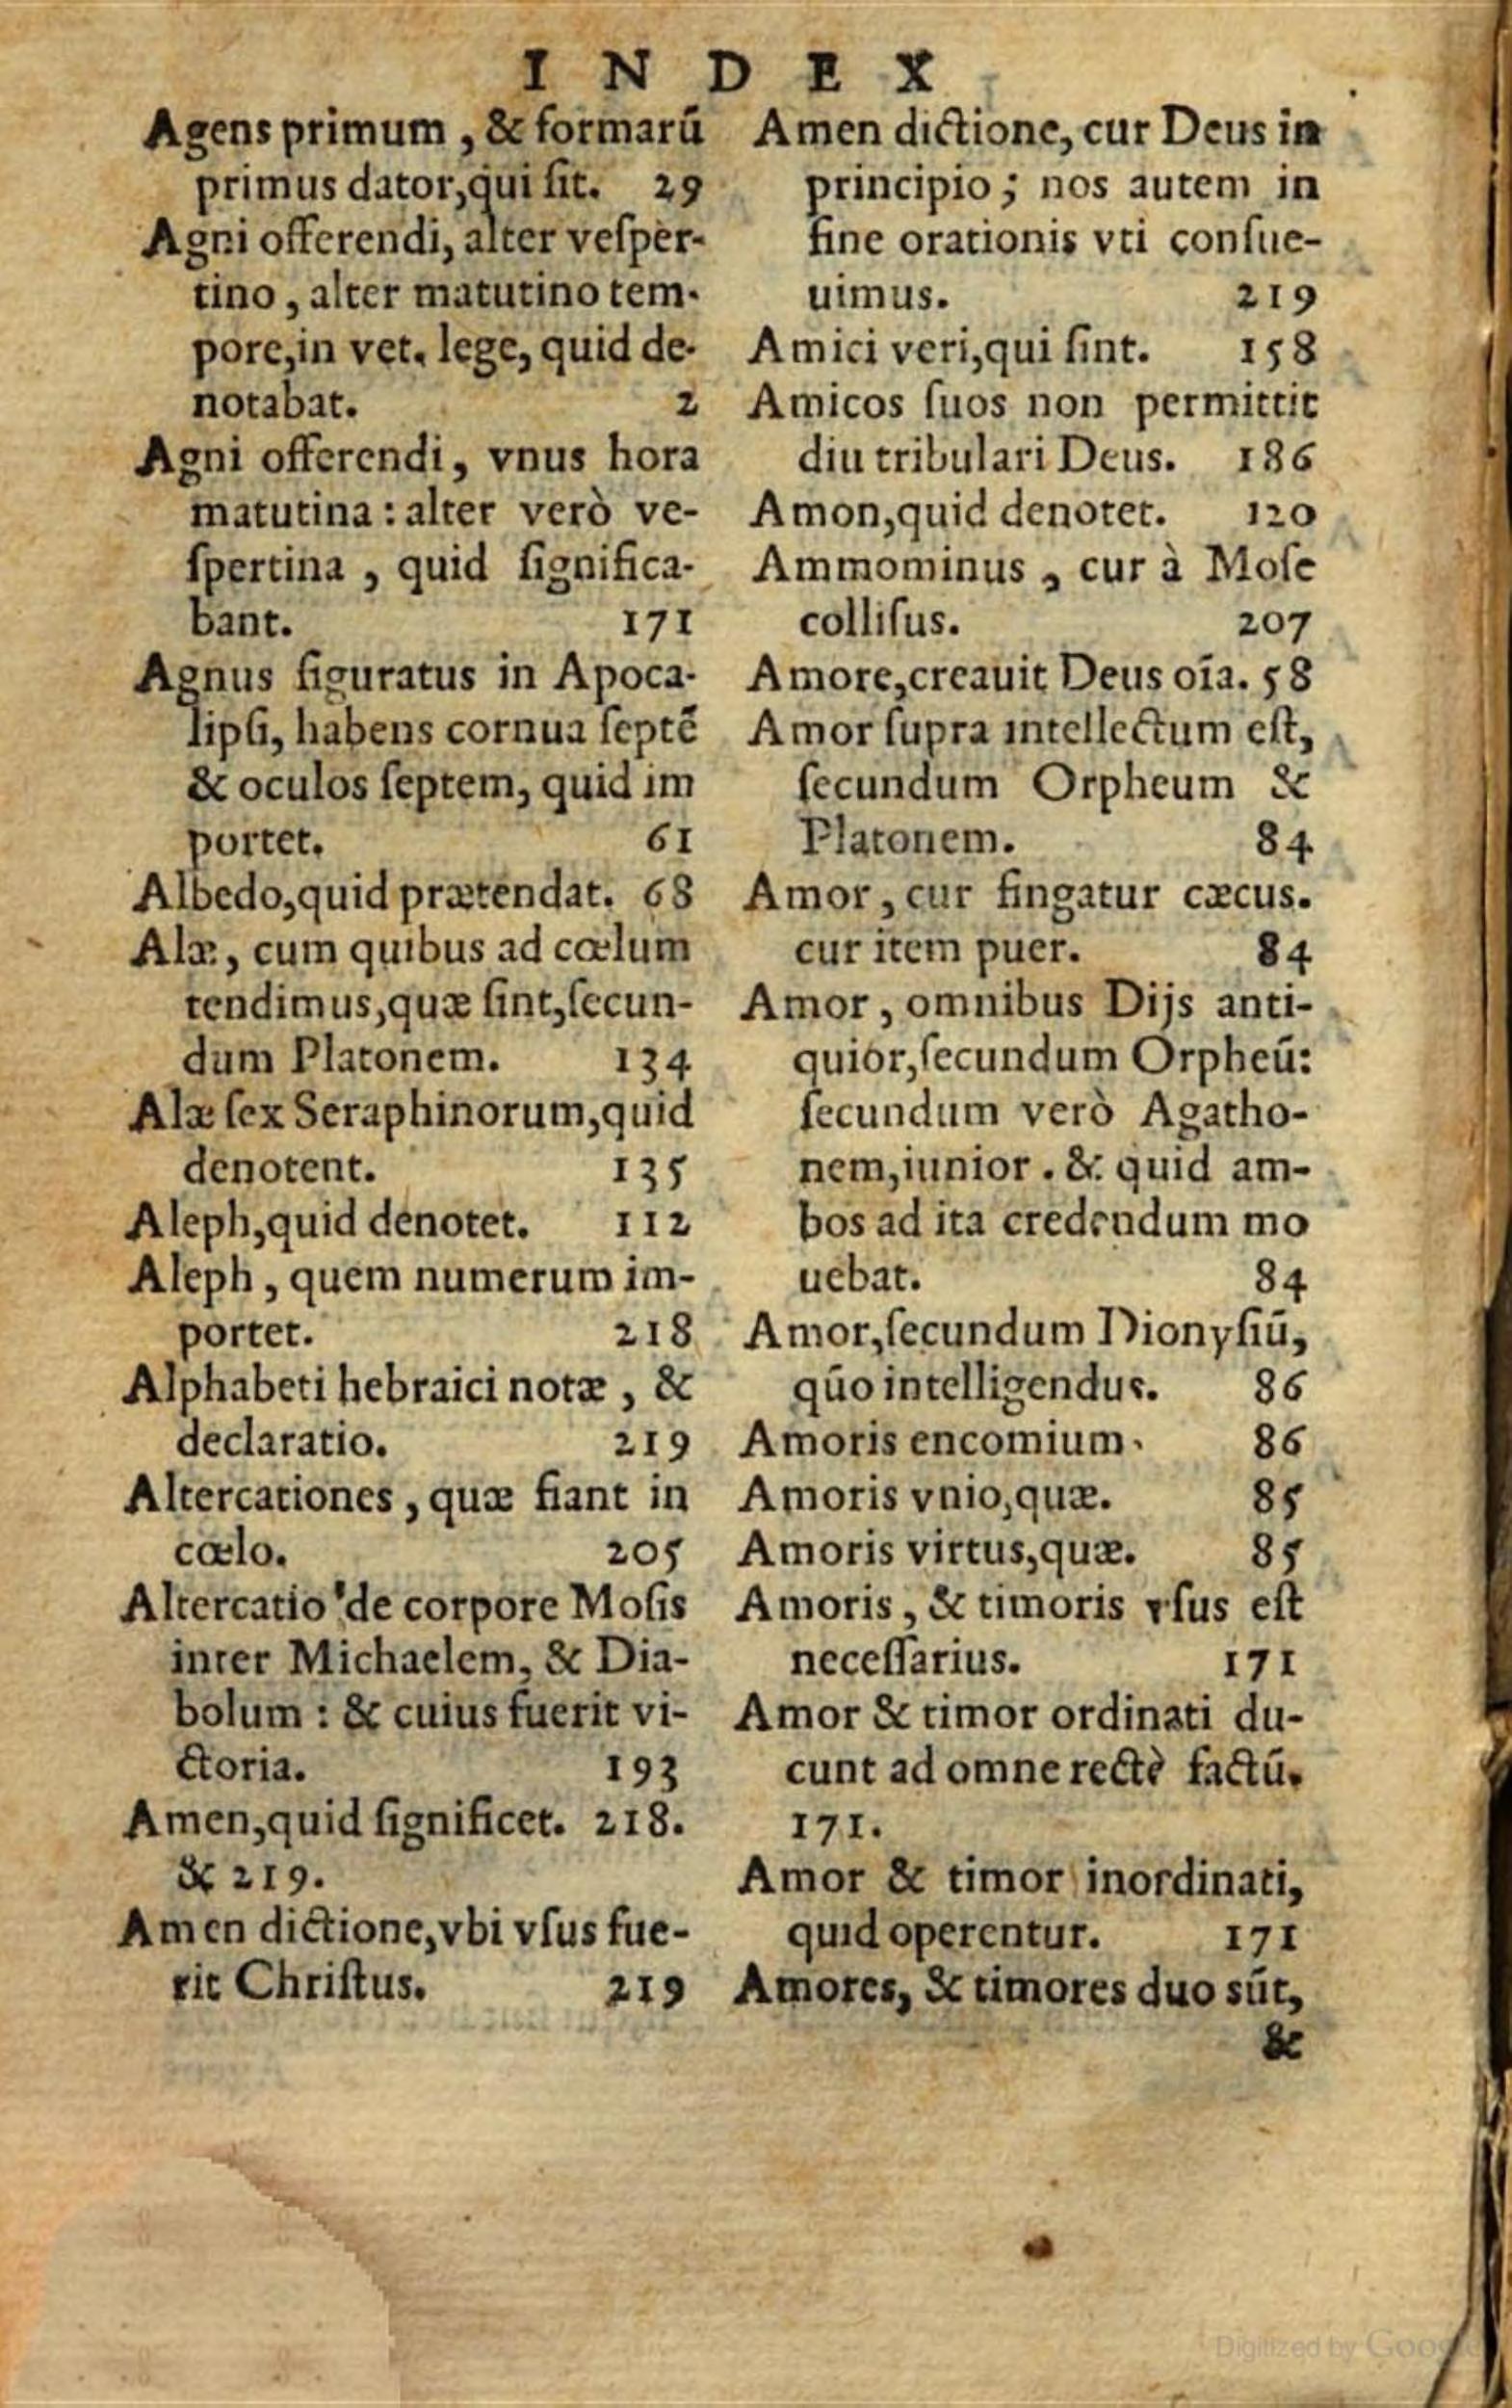 INDEX
Agens primum, & formarū
primus dator, qui ſit. 29
Agni offerendi, alter veſper-
tino, alter matutino tem-
pore, in vet. lege, quid de-
notabat. 2
Agni offerendi, vnus hora
matutina: alter verò ve-
ſpertina, quid ſignifica-
bant. 171
Agnus figuratus in Apoca-
lipſi, habens cornua ſeptē
& oculos ſeptem, quid im
portet. 61
Albedo, quid prætendat. 68
Alæ, cum quibus ad cœlum
tendimus, quæ ſint, ſecun-
dum Platonem. 134
Alæ ſex Seraphinorum, quid
denotent. 135
Aleph, quid denotet. 112
Aleph, quem numerum im-
portet. 218
Alphabeti hebraici notæ, &
declaratio. 219
Altercationes, quæ fiant in
cœlo. 205
Altercatio de corpore Moſis
inter Michaelem, & Dia-
bolum: & cuius fuerit vi-
ctoria. 193
Amen, quid ſignificet. 218.
& 219.
Amen dictione, vbi vſus fue-
rit Chriſtus. 219
Amen dictione, cur Deus in
principio; nos autem in
fine orationis vti conſue-
uimus. 219
Amici veri, qui ſint. 158
Amicos ſuos non permittit
diu tribulari Deus. 186
Amon, quid denotet. 120
Ammominus, cur à Moſe
colliſus. 207
Amore, creauit Deus oīa. 58
Amor ſupra intellectum eſt,
ſecundum Orpheum &
Platonem. 84
Amor, cur fingatur cæcus.
cur item puer. 84
Amor, omnibus Dijs anti-
quior, ſecundum Orpheū:
ſecundum verò Agatho-
nem, iunior. & quid am-
bos ad ita credendum mo
uebat. 84
Amor, ſecundum Dionyſiū,
qūo intelligendus. 86
Amoris encomium. 86
Amoris vnio, quæ. 85
Amoris virtus, quæ. 85
Amoris, & timoris vſus eſt
neceſſarius. 171
Amor & timor ordinati du-
cunt ad omne rectè factū.
171.
Amor & timor inordinati,
quid operentur. 171
Amores, & timores duo sūt,
&
Digitized by Google